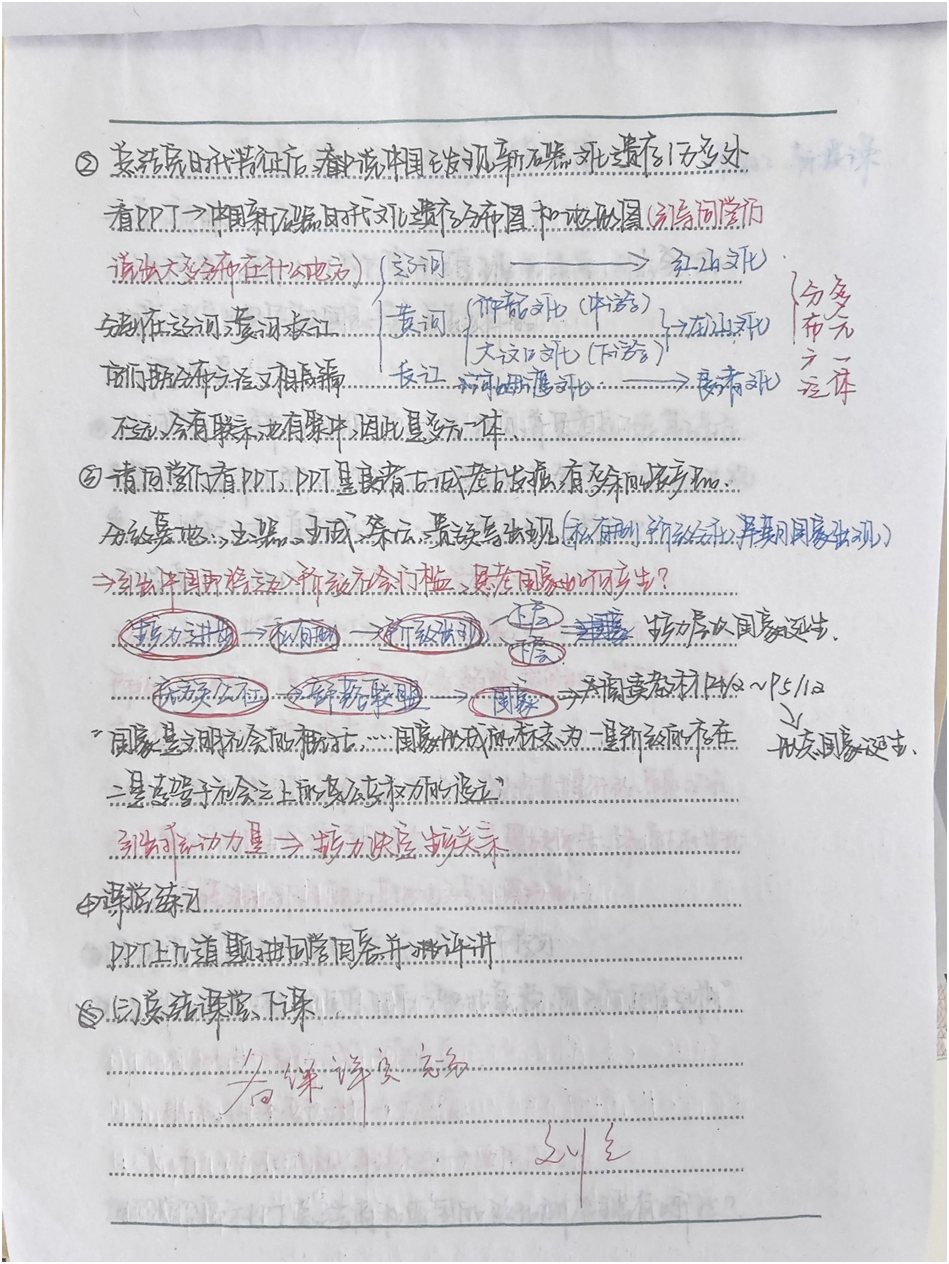 ② 总结完时代特征后,着中说中国已发现新石器文化遗存1万多处
看PPT→中国新石器时代文化遗存分布图和地形图(引导同学们
说出大多分布在什么地方) 辽河 → 红山文化
分布在辽河、黄河、长江 黄河 仰韶文化 (中游) 大汶口文化 (下游) → 龙山文化
长江 河姆渡文化 → 良渚文化
多元一体 分布广泛
不远,会有联系,也有集中,因此是多元一体、
③ 请同学们看PPT、PPT是良渚古城考古发掘,有多余的生产品、
分级墓地、玉器、王城、祭坛、贵族等出现(私有制、阶级分化、早期国家出现)
⇒引出中国即将迈入阶级社会门槛、思考国家如何产生?
生产力进步 → 私有制 → 阶级出现 上层 下层 生产力层次国家诞生、
氏族公社 → 部落联盟 → 国家 ⇒ 阅读教材P4/2~P5/12
"国家是文明社会的概括,…国家形成的标志为一是阶级的存在 形态国家诞生、
二是凌驾于社会之上的公共权力的设立"
引出推动力是 ⇒ 生产力决定生产关系
④课堂练习
PPT上几道题抽同学回答并评讲
(三)总结课堂、下课
备课详实完备